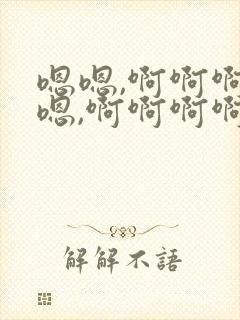 嗯嗯,啊啊啊
嗯,啊啊啊啊
解解不語